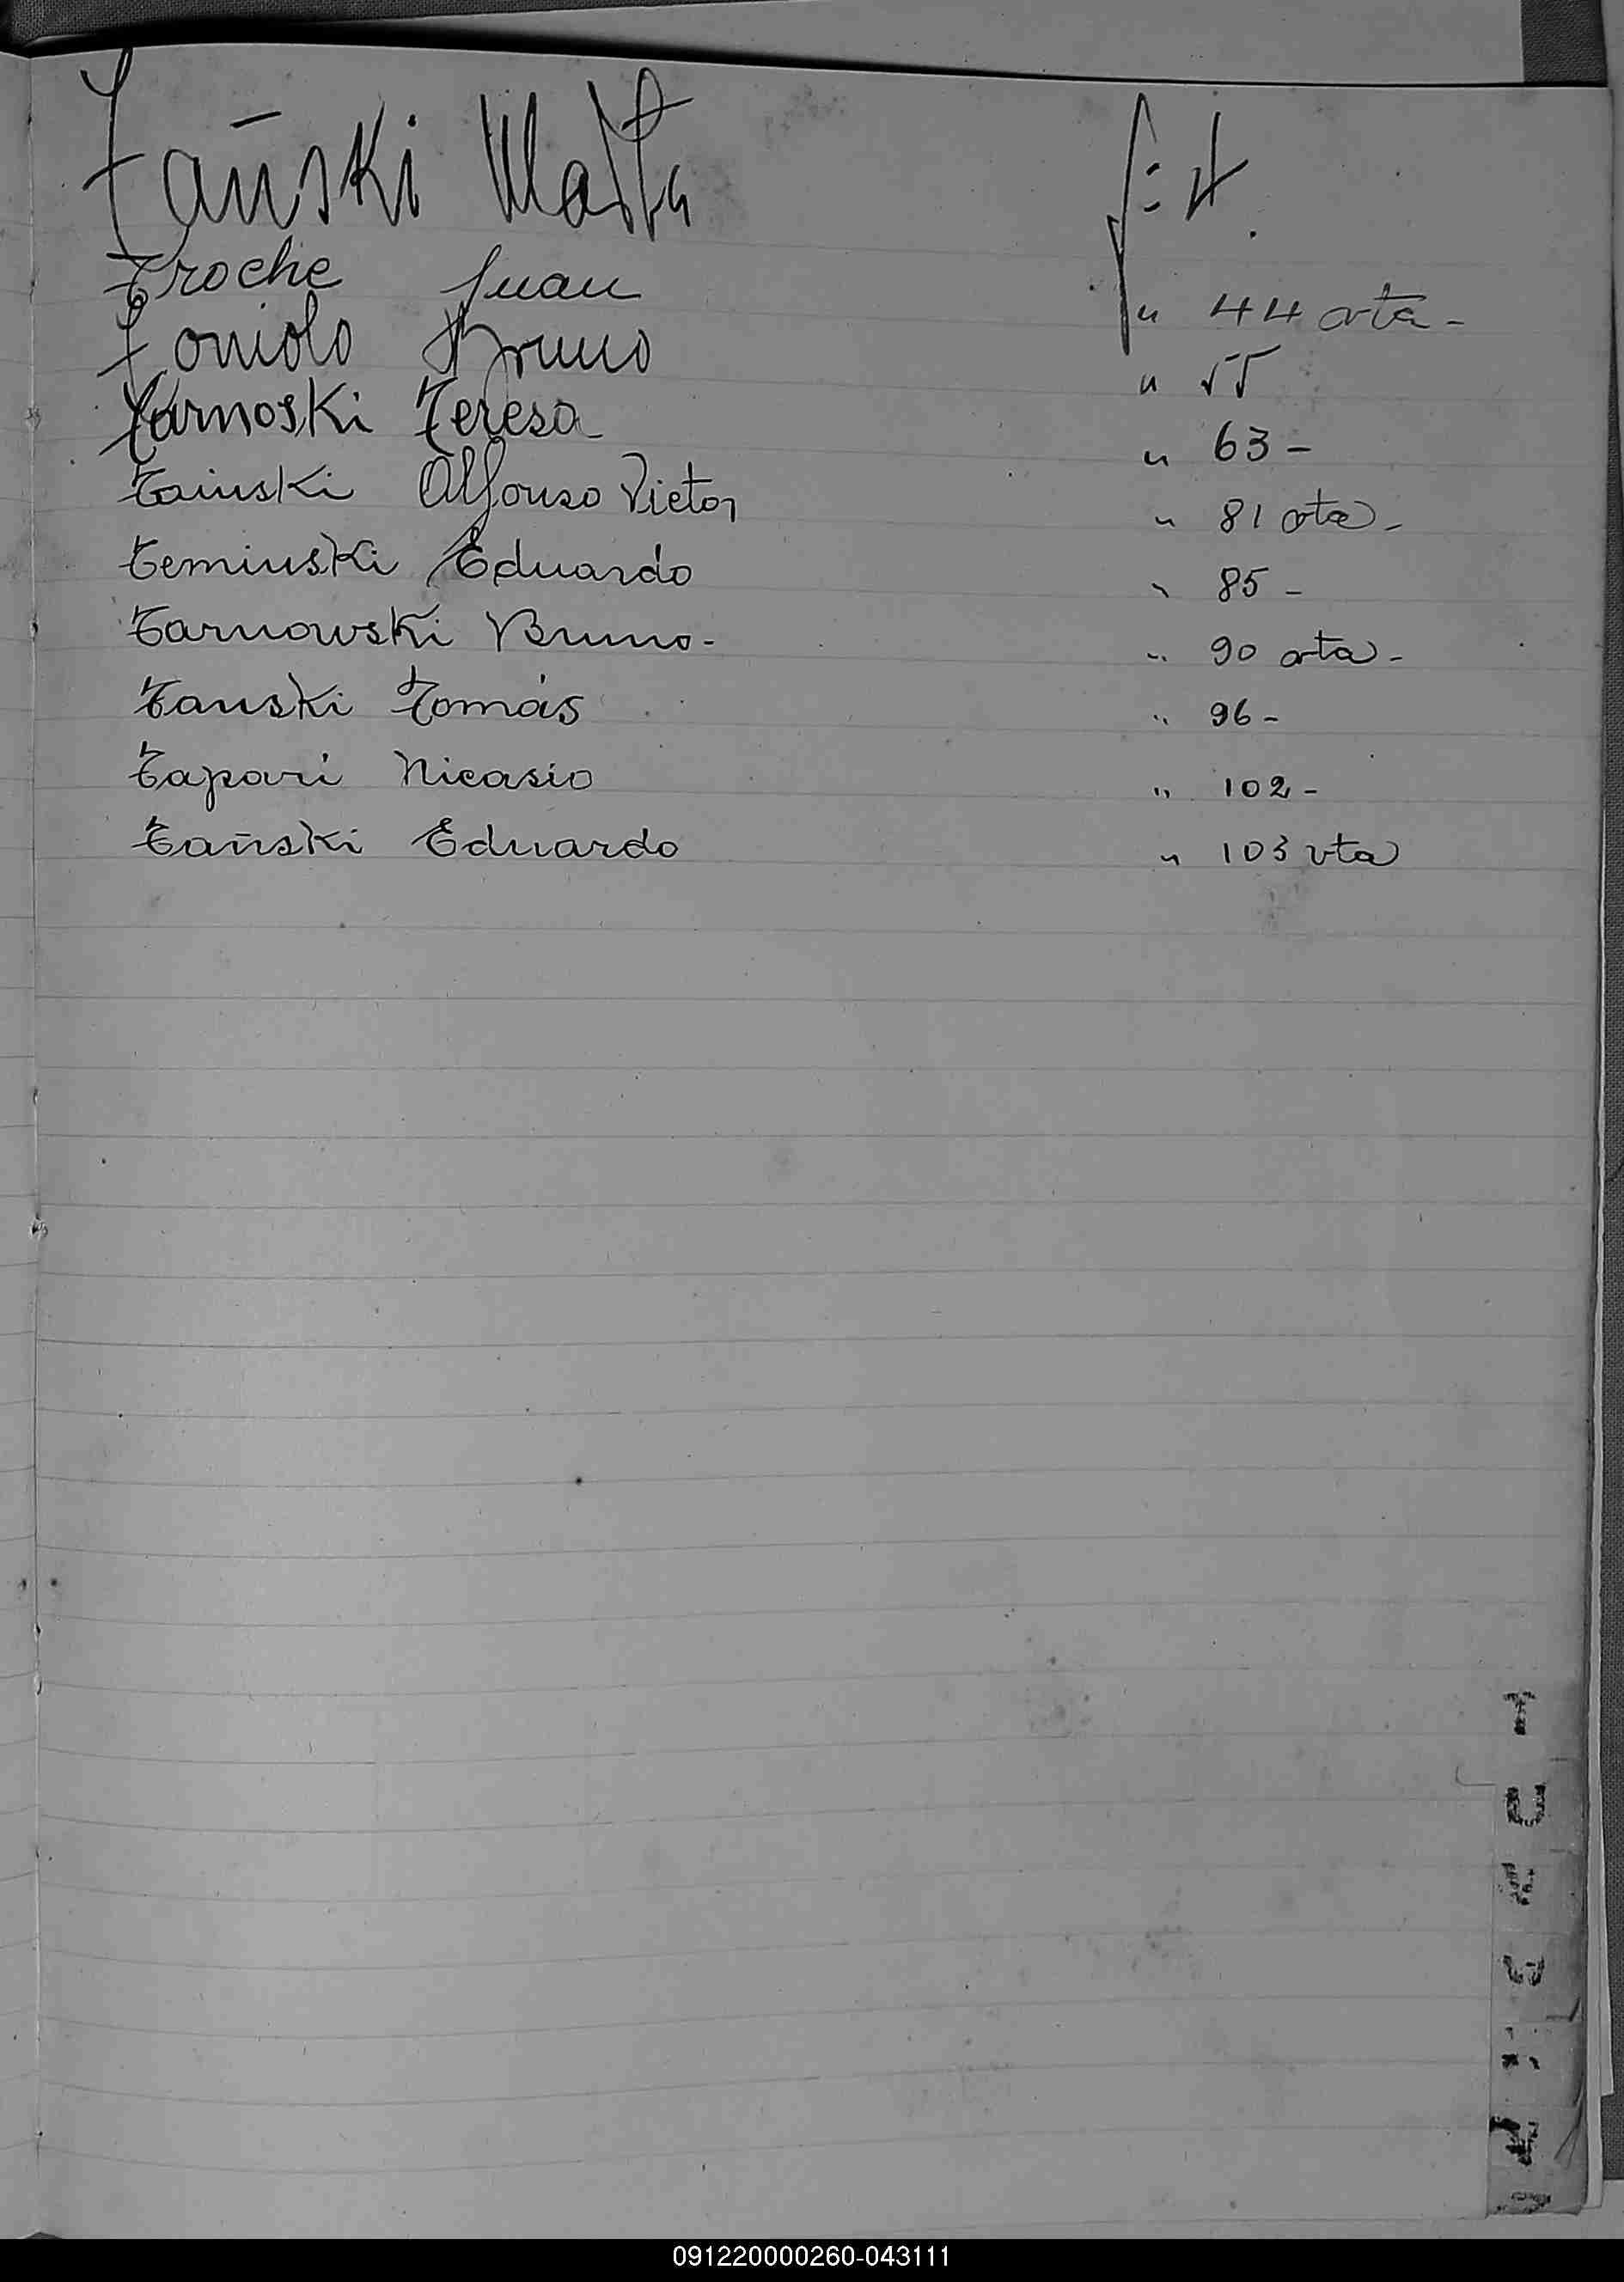 Tañski Marta f: 4.
Troche Juan " 44 vta-
Toniolo Bruno " 55
Tarnoski Teresa " 63-
Tainski Alfonso Victor " 81 vta-
Teminski Eduardo " 85-
Tarnowski Bruno- " 90 vta-
Tanski Tomás " 96-
Tapari Nicasio " 102-
Tañski Eduardo " 103 vta
T
091220000260-043111